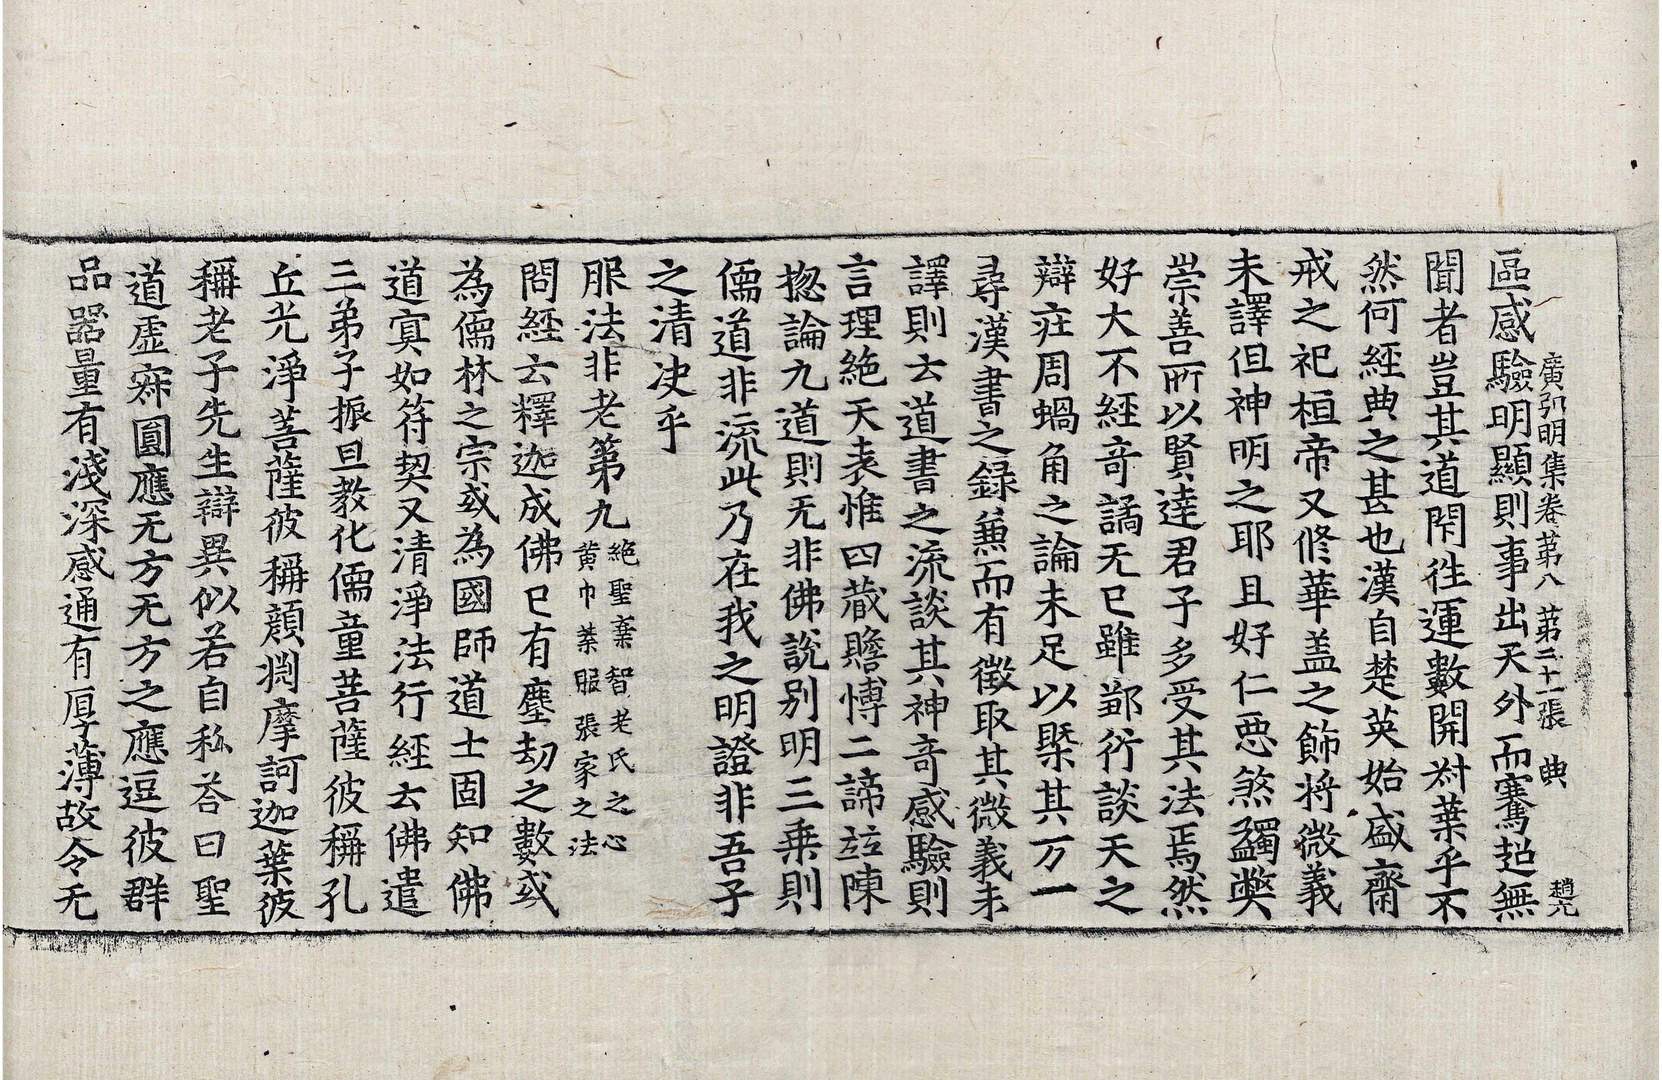 廣弘明集卷第八　第二十一張　典　趙九
區感驗明顯則事出天外而騫迢無
聞者豈其道閇往運數開叔葉乎不
然何經典之甚也漢自楚英始盛齋
戒之祀桓帝又修華盖之飾将微義
未譯但神明之耶且好仁惡煞蠲弊
崇善所以賢達君子多受其法焉然
好大不經竒譎无已雖鄒衍談天之
辯庄周蝸角之論未足以槩其万一
尋漢書之録兼而有徵取其微義未
譯則云道書之流談其神竒感驗則
言理絶天表惟四藏贍愽二諦竝陳
揔論九道則无非佛說别明三乗則
儒道非流此乃在我之明證非吾子
之清决乎
服法非老第九絶聖棄智老氏之心黄巾禁服張家之法
問經云釋迦成佛已有塵劫之數或
為儒林之宗或為國師道士固知佛
道㝠如符契又清淨法行經云佛遣
三弟子振旦教化儒童菩薩彼稱孔
丘光淨菩薩彼稱顔淵摩訶迦葉彼
稱老子先生辯異似若自私荅曰聖
道虚寂圓應无方无方之應逗彼群
品器量有淺深感通有厚薄故令无